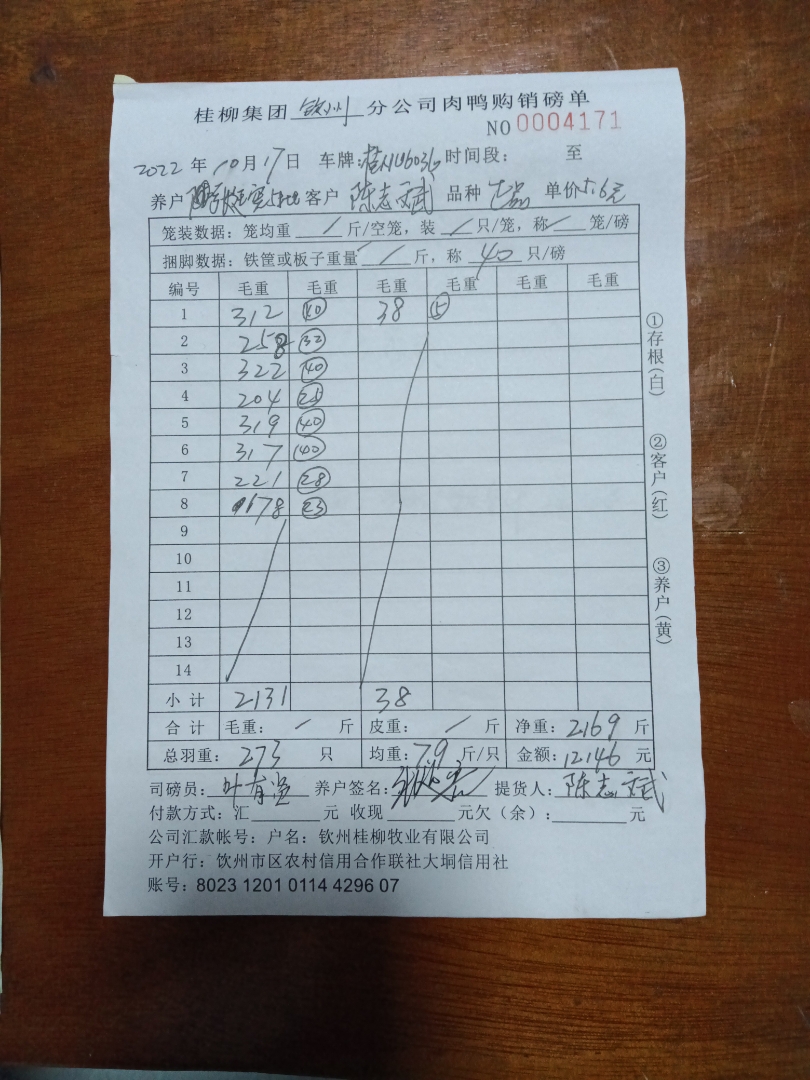 桂柳集团 钦州 分公司肉鸭购销磅单
NO 0004171
2022 年 10 月 17 日 车牌: 时间段: 至
养户 客户 陈志斌 品种 单价 5.6元
笼装数据: 笼均重 / 斤/空笼, 装 / 只/笼, 称 / 笼/磅
捆脚数据: 铁筐或板子重量 / 斤, 称 40 只/磅
编号 毛重 毛重 毛重 毛重 毛重 毛重
1 312 40 38 5
2 258 32
3 322 40
4 204 25
5 319 40
6 317 40
7 221 28
8 178 23
9
10
11
12
13
14
小计 2131 38
合计 毛重: / 斤 皮重: / 斤 净重: 2169 斤
总羽重: 273 只 均重: 7.9 斤/只 金额: 12146 元
司磅员: 养户签名: 提货人: 陈志斌
付款方式: 汇 元 收现 元欠(余): 元
公司汇款帐号: 户名: 钦州桂柳牧业有限公司
开户行: 饮州市区农村信用合作联社大垌信用社
账号: 8023 1201 0114 4296 07
①存根(白)
②客户(红)
③养户(黄)